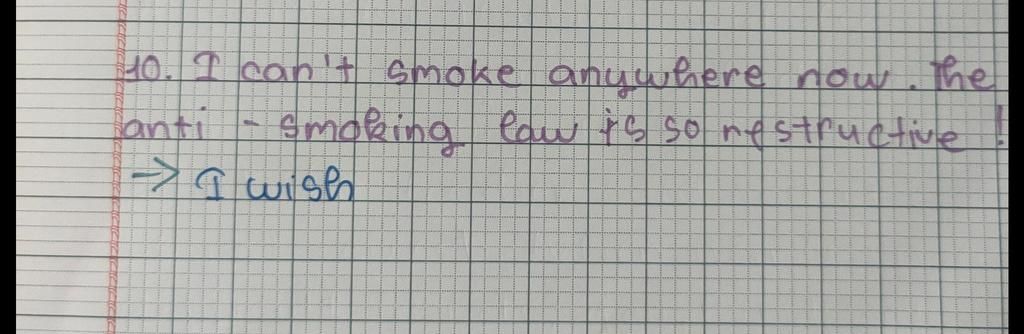 10. I can't smoke anywhere now. The
anti-smoking law is so restructive!
→ I wish